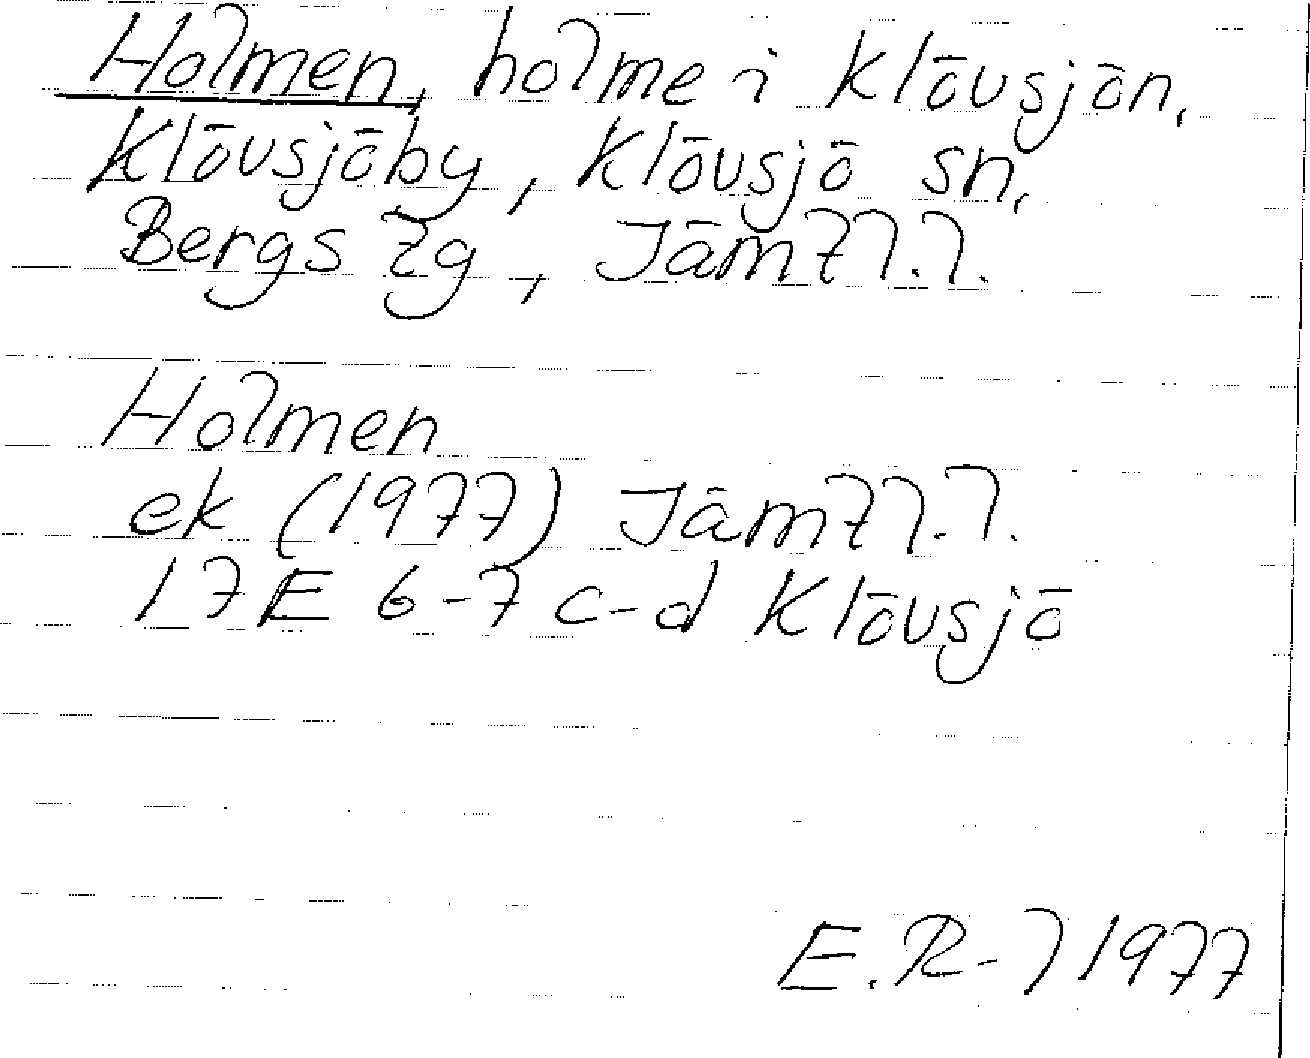 Holmen, holme i Klövsjön,
Klövsjöby, Klövsjö sn,
Bergs tg, Jämtl.l.
Holmen
ek (1977) Jämtl.l.
17E 6-7 c-d Klövsjö
E.R-l 1977